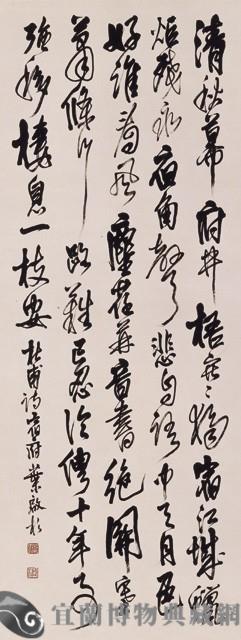 清秋幕府井梧寒獨宿江城蠟
炬殘永夜角聲悲自語中天月色
好誰看風塵荏苒音書絕關塞
蕭條行路難已忍伶俜十年事
強移棲息一枝安 杜甫詩宿府 葉啟
宜蘭博物典藏網